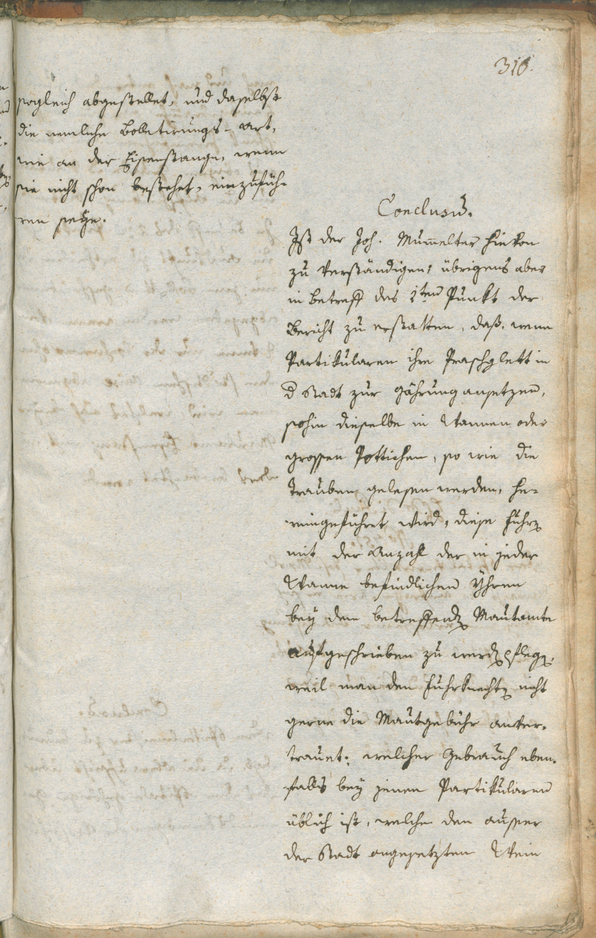 310.
sogleich abgestellet, und daselbst
die nemliche Bolletirungs-Art,
wie an der Eisenstange, wenn
sie nicht schon bestehet, einzufüh-
ren seÿe.
Conclusũ.
Ist der Joh. Mumelter hievon
zu verständigen, übrigens aber
in betreff des 2ten Punkt der
Bericht zu erstatten, daß, wenn
Partikularen ihre Praschglett in
d Stadt zur Gährung ansetzen,
sohin dieselbe in Wannen oder
grossen Pottichen, so wie die
Trauben gelesen werden, he-
reingeführt wird, diese Fuhrn
mit der Anzahl der in jeder
Wanne befindlichen Yhren
bey dem betreffendn Mautamte
aufgeschrieben zu werdn pflegn,
weil man den Fuhrknechtn nicht
gerne die Mautgebühr anver-
trauet: welcher Gebrauch eben-
falls bey jenen Partikularen
üblich ist, welche den ausser
der Stadt angesetzten Wein